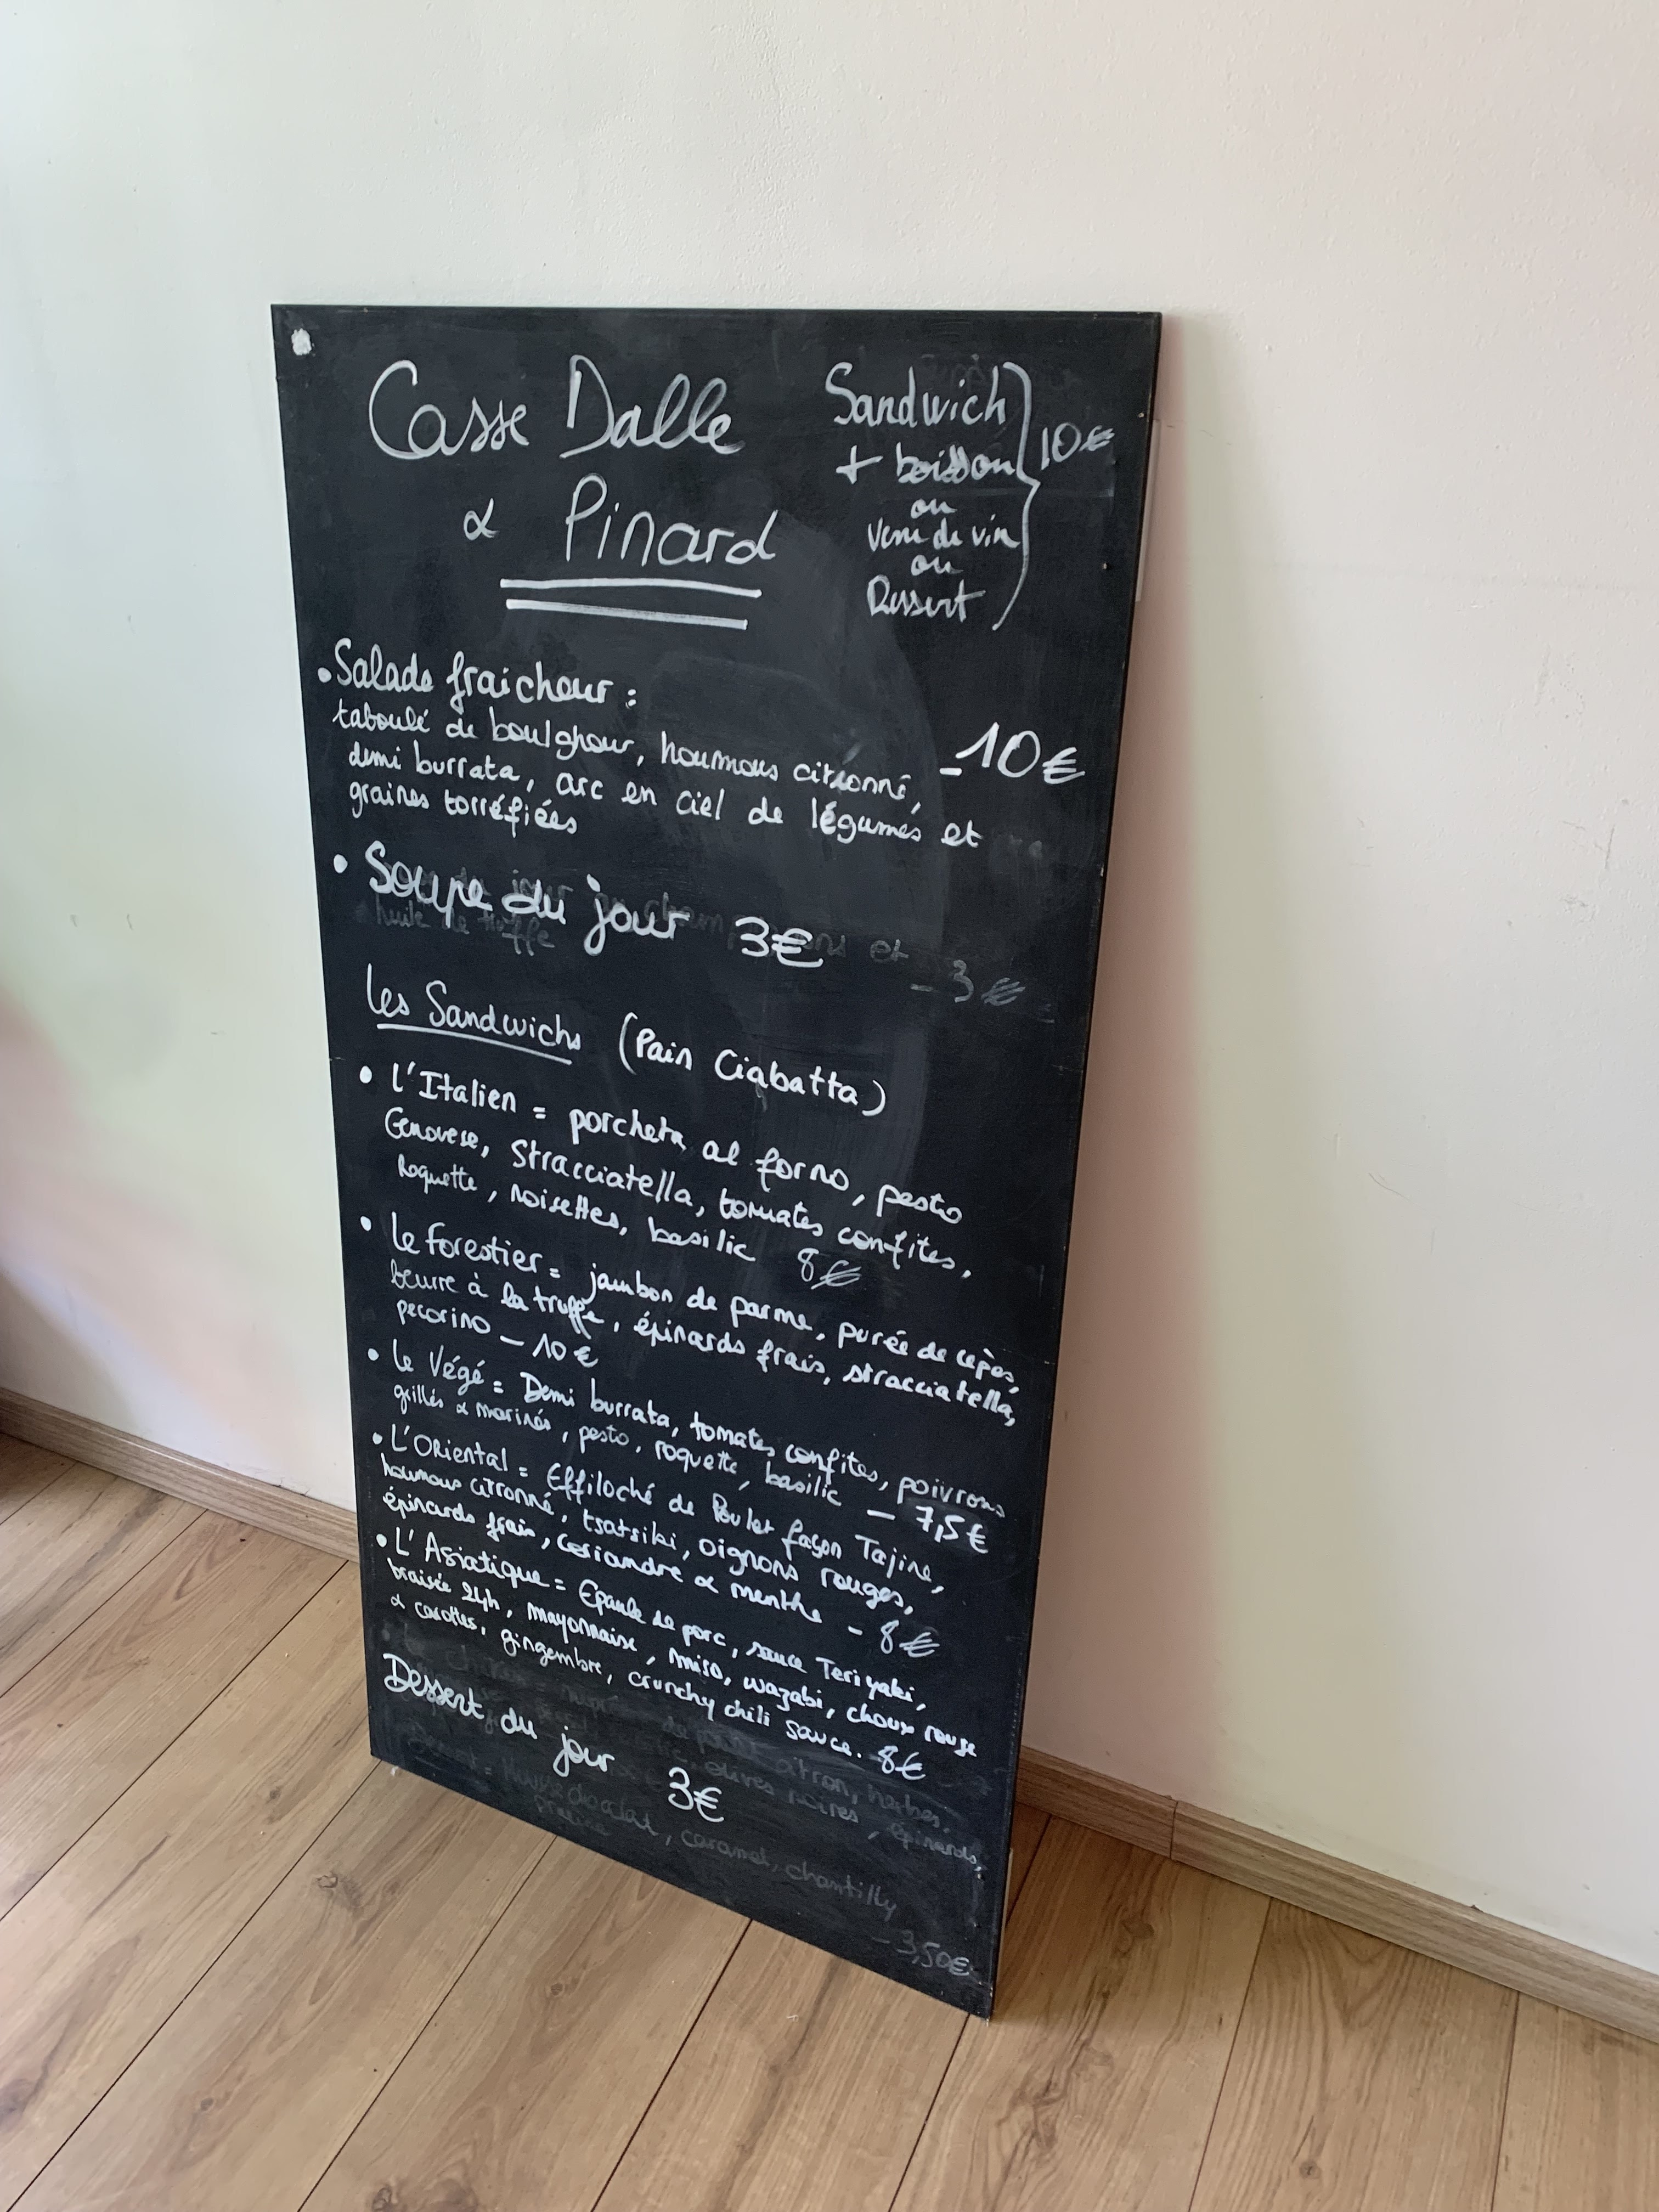 Casse Dalle
& Pinard
Sandwich
+ boisson
ou
Verre de vin
ou
Dessert
10€
• Salade fraicheur :
taboulé de boulghour, houmous citronné, - 10€
demi burrata, arc en ciel de légumes et
graines torréfiées
• Soupe du jour 3€
huile de truffe
et
- 3 €
Les Sandwichs (Pain Ciabatta)
• L'Italien = porcheta al forno, pesto
Genovese, Stracciatella, tomates confites,
Roquette, noisettes, basilic 8€
• Le Forestier = jambon de parme, purée de cèpes,
beurre à la truffe, épinards frais, stracciatella,
pecorino - 10€
• Le Végé = Demi burrata, tomates confites, poivrons
grillés & marinés, pesto, roquette, basilic - 7,5€
• L'Oriental = Effiloché de Poulet façon Tajine,
houmous citronné, tsatsiki, oignons rouges,
épinards frais, Coriandre & menthe - 8€
• L'Asiatique = Epaule de porc, sauce Teriyaki,
braisée 24h, mayonnaise, miso, wazabi, choux rouge
& carottes, gingembre, crunchy chili sauce. 8€
Dessert du jour 3€
citron, herbes,
olives noires, épinards,
chocolat, caramel, chantilly
- 3,50€